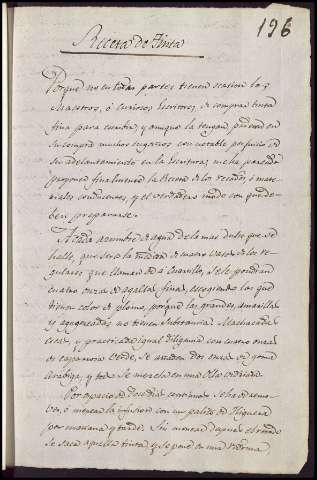 196
Receta de Tinta
Porque no en todas partes tienen ocasion los
Maestros, ó curiosos Escritores, de comprar tinta
fina para escribir, y aunque la tengan, padecen en
su compra muchos engaños con notable perjuicio de
su adelantamiento en la Escritura; me ha parecido
proponer finalmente la Receta de los recados, ó mate-
riales conducentes, y el verdadero modo con que de-
ben prepararse.
A cada azumbre de agua de la mas dulce que se
halle, que sera la medida de quatro vasos de los re-
gulares que llaman de á Quartillo, se le pondran
quatro onzas de agallas finas, escogiendo las que
tienen color de plomo, porque las grandes, amarillas
y agugereadas no tienen substancia. Machacadas
estas, y practicada igual diligencia con quatro onzas
de caparrosa verde, se añaden dos onzas de goma
Arabiga, y todo se mezcla en una Olla vedriada.
Por espacio de doce dias continuos se ha de mo-
ver, ó menear la infusion con un palito de Higuera
por mañana y tarde. Sin menear despues el
se saca aquella tinta, y se pone en una redoma